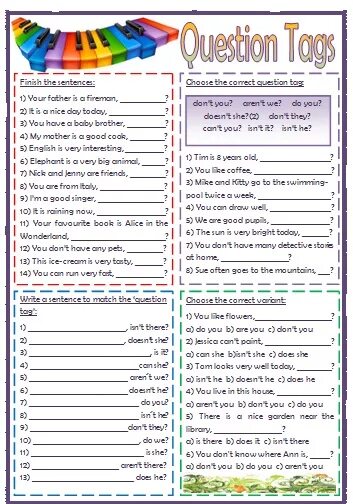 Question Tags
Finish the sentences:
1) Your father is a fireman, ________?
2) It is a nice day today, ________?
3) You have a baby brother, ________?
4) My mother is a good cook, ________?
5) English is very interesting, ________?
6) Elephant is a very big animal, ________?
7) Nick and Jenny are friends, ________?
8) You are from Italy, ________?
9) I'm a good singer, ________?
10) It is raining now, ________?
11) Your favourite book is Alice in the
Wonderland, ________?
12) You don't have any pets, ________?
13) This ice-cream is very tasty, ________?
14) You can run very fast, ________?
Choose the correct question tag:
don't you? aren't we? do you?
doesn't she?(2) don't they?
can't you? isn't it? isn't he?
1) Tim is 8 years old, ________?
2) You like coffee, ________?
3) Mike and Kitty go to the swimming-
pool twice a week, ________?
4) You can draw well, ________?
5) We are good pupils, ________?
6) The sun is very bright today, ________?
7) You don't have many detective stories
at home, ________?
8) Sue often goes to the mountains, ___?
Write a sentence to match the 'question
tag':
1) ________, isn't there?
2) ________, doesn't she?
3) ________, is it?
4) ________ can she?
5) ________ aren't we?
6) ________ doesn't he?
7) ________ do you?
8) ________ isn't he?
9) ________ don't they?
10) ________, do we?
11) ________ isn't she?
12) ________ aren't there?
13) ________ does he?
Choose the correct variant:
1) You like flowers, ________?
a) do you b) are you c) don't you
2) Jessica can't paint, ________?
a) can she b)isn't she c) does she
3) Tom looks very well today, ________?
a) isn't he b) doesn't he c) does he
4) You live in this house, ________?
a) aren't you b) don't you c) do you
5) There is a nice garden near the
library, ________?
a) is there b) does it c) isn't there
6) You don't know where Ann is, ____?
a) don't you b) do you c) aren't you